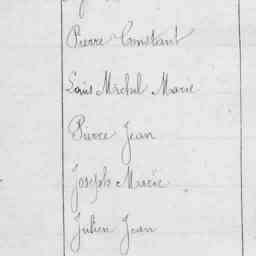 Pierre Constant
Louis Michel Marie
Pierre Jean
Joseph Marie
Julien Jean